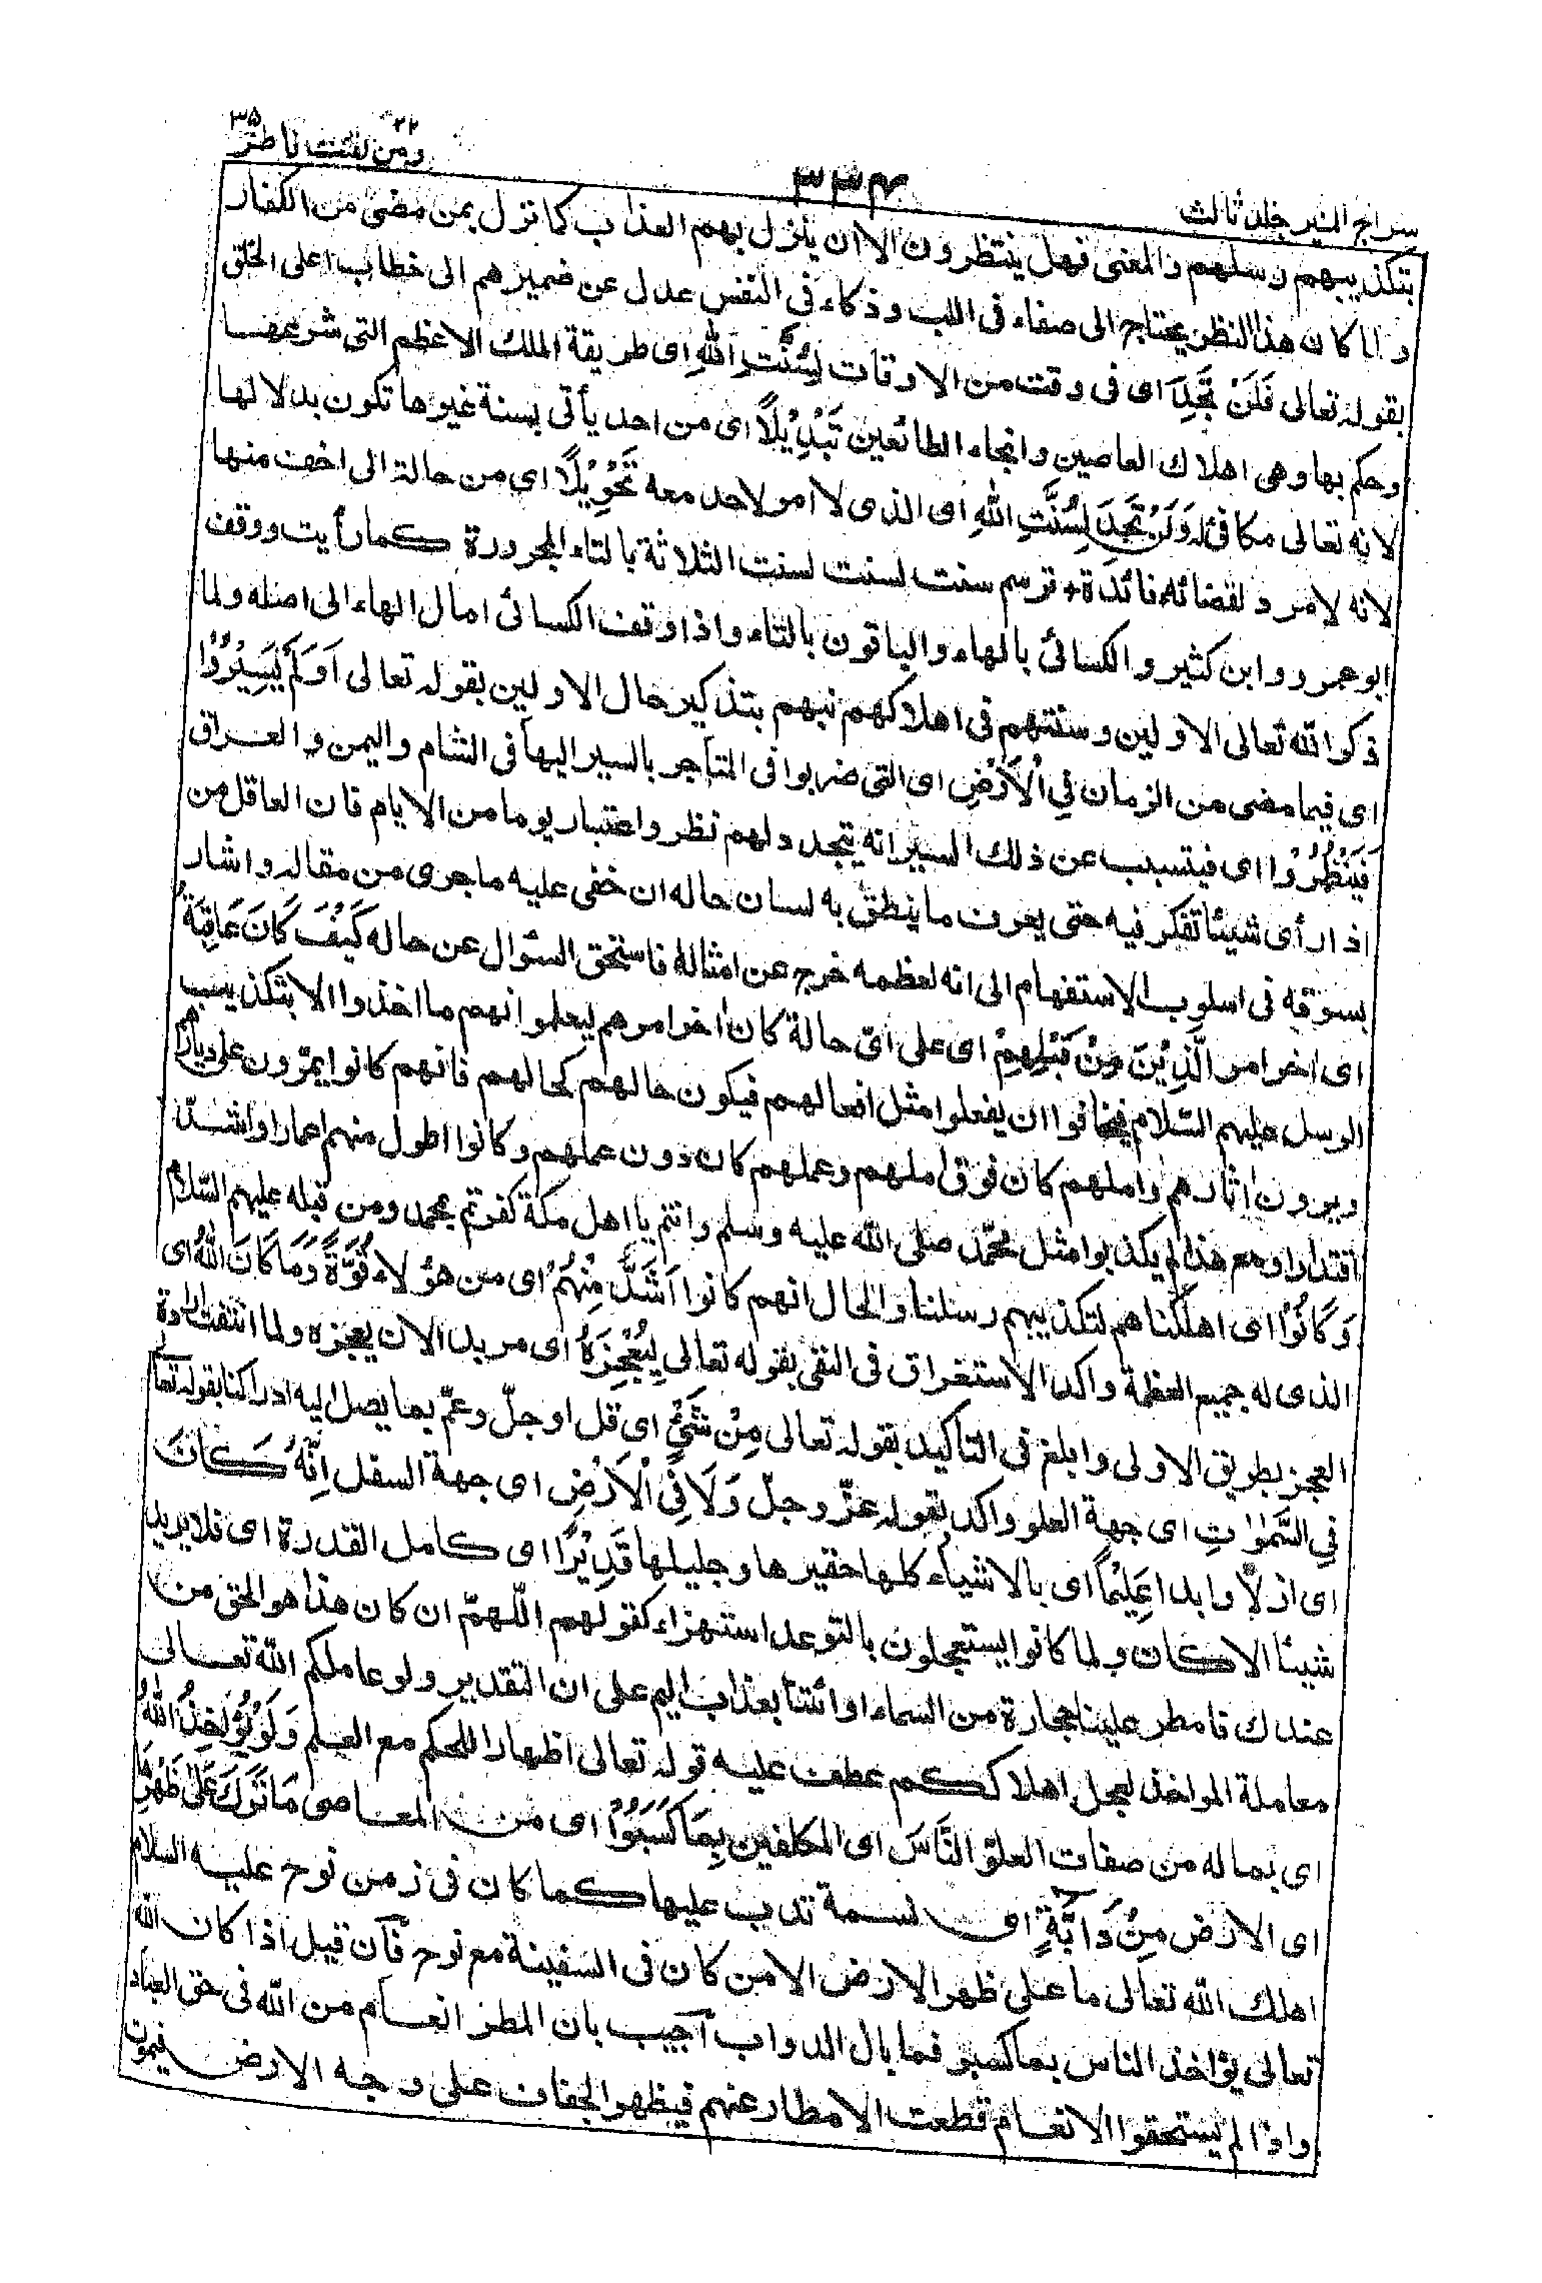 سراج المنير جلد ثالث
٣٣٤
ومن يقنت ٢٢
فاطر ٣٥
بتكذيبهم رسلهم والمعنى فهل ينتظرون الا ان ينزل بهم العذاب كما نزل بمن مضى من الكفار
ولما كان هذا النظر يحتاج الى صفاء فى اللب وذكاء فى النفس عدل عن ضميرهم الى خطاب اعلى الخلق
بقوله تعالى فَلَنْ تَجِدَ اى فى وقت من الاوقات لِسُنَّتِ اللهِ اى طريقة الملك الاعظم التى شرعها
وحكم بها وهى اهلاك العاصين وانجاء الطائعين تَبْدِيْلًا اى من احد يأتى بسنة غيرها تكون بدلا لها
لانه تعالى مكافئ له وَلَنْ تَجِدَ لِسُنَّتِ اللهِ اى الذى لا امر لاحد معه تَحْوِيْلًا اى من حالة الى اخف منها
لانه لا مرد لقضائه فائدة ترسم سنت لسنت لسنت الثلاثة بالتاء المجرورة كما رأيت ووقف
ابو عمرو وابن كثير والكسائى بالهاء والباقون بالتاء واذا وقف الكسائى امال الهاء الى اصله ولما
ذكر الله تعالى الاولين وسنتهم فى اهلاكهم نبههم بتذكير حال الاولين بقوله تعالى اَوَلَمْ يَسِيْرُوْا
اى فيما مضى من الزمان فِى الْاَرْضِ اى التى ضربوا فى المتاجر بالسير اليها فى الشام واليمن والعراق
فَيَنْظُرُوْا اى فيتسبب عن ذلك السير انه يتجدد لهم نظر واعتبار يوما من الايام فان العاقل من
اذا رأى شيئا تفكر فيه حتى يعرف ما ينطق به لسان حاله ان خفى عليه ما جرى من مقاله واشار
بسوقه فى اسلوب الاستفهام الى انه لعظمه خرج عن امثاله فاستحق السؤال عن حاله كَيْفَ كَانَ عَاقِبَةُ
اى اخر امر الَّذِيْنَ مِنْ قَبْلِهِمْ اى على اىّ حالة كان اخر امرهم ليعلموا انهم ما اخذوا الا بتكذيب
الرسل عليهم السّلام فيخافوا ان يفعلوا مثل افعالهم فيكون حالهم كحالهم فانهم كانوا يمرّون على ديارهم
ويرون اثارهم واملهم كان فوق املهم وعملهم كان دون عملهم وكانوا اطول منهم اعمارا واشدّ
اقتدارا ومع هذا لم يكذبوا مثل محمّد صلى الله عليه وسلم وانتم يا اهل مكة كفرتم بمحمد ومن قبله عليهم السّلام
وَكَانُوْا اى اهلكناهم لتكذيبهم رسلنا والحال انهم كانوا اَشَدَّ مِنْهُمْ اى من هؤلاء قُوَّةً وَمَا كَانَ اللهُ اى
الذى له جميع العظمة واكد الاستغراق فى النفى بقوله تعالى لِيُعْجِزَهٗ اى مريدا لان يعجزه ولما انتفت ارادة
العجز بطريق الاولى وابلغ فى التأكيد بقوله تعالى مِنْ شَىْءٍ اى قل او جلّ وعمّ بما يصل اليه ادراكنا بقوله تعالى
فِى السَّمٰوٰتِ اى جهة العلو واكد بقوله عزّ وجلّ وَلَا فِى الْاَرْضِ اى جهة السفل اِنَّهٗ كَانَ
اى ازلا وابدا عَلِيْمًا اى بالاشياء كلها حقيرها وجليلها قَدِيْرًا اى كامل القدرة اى فلا يريد
شيئا الا كان ولما كانوا يستعجلون بالتوعد استهزاء كقولهم اللّهمّ ان كان هذا هو الحق من
عندك فامطر علينا حجارة من السماء او ائتنا بعذاب اليم على ان التقدير ولو عاملكم الله تعالى
معاملة المواخذ لعجل اهلاككم عطف عليه قوله تعالى اظهارا للحكم مع العلم وَلَوْ يُؤَاخِذُ اللهُ
اى بما له من صفات العلوّ النَّاسَ اى المكلفين بِمَا كَسَبُوْا اى من المعاصى مَا تَرَكَ عَلٰى ظَهْرِهَا
اى الارض مِنْ دَابَّةٍ اى نسمة تدب عليها كما كان فى زمن نوح عليه السلام
اهلك الله تعالى ما على ظهر الارض الا من كان فى السفينة مع نوح فان قيل اذا كان الله
تعالى يؤاخذ الناس بما كسبو فما بال الدواب اجيب بان المطر انعام من الله فى حق العباد
واذا لم يستحقوا الانعام قطعت الامطار عنهم فيظهر الجفاف على وجه الارض فيموت